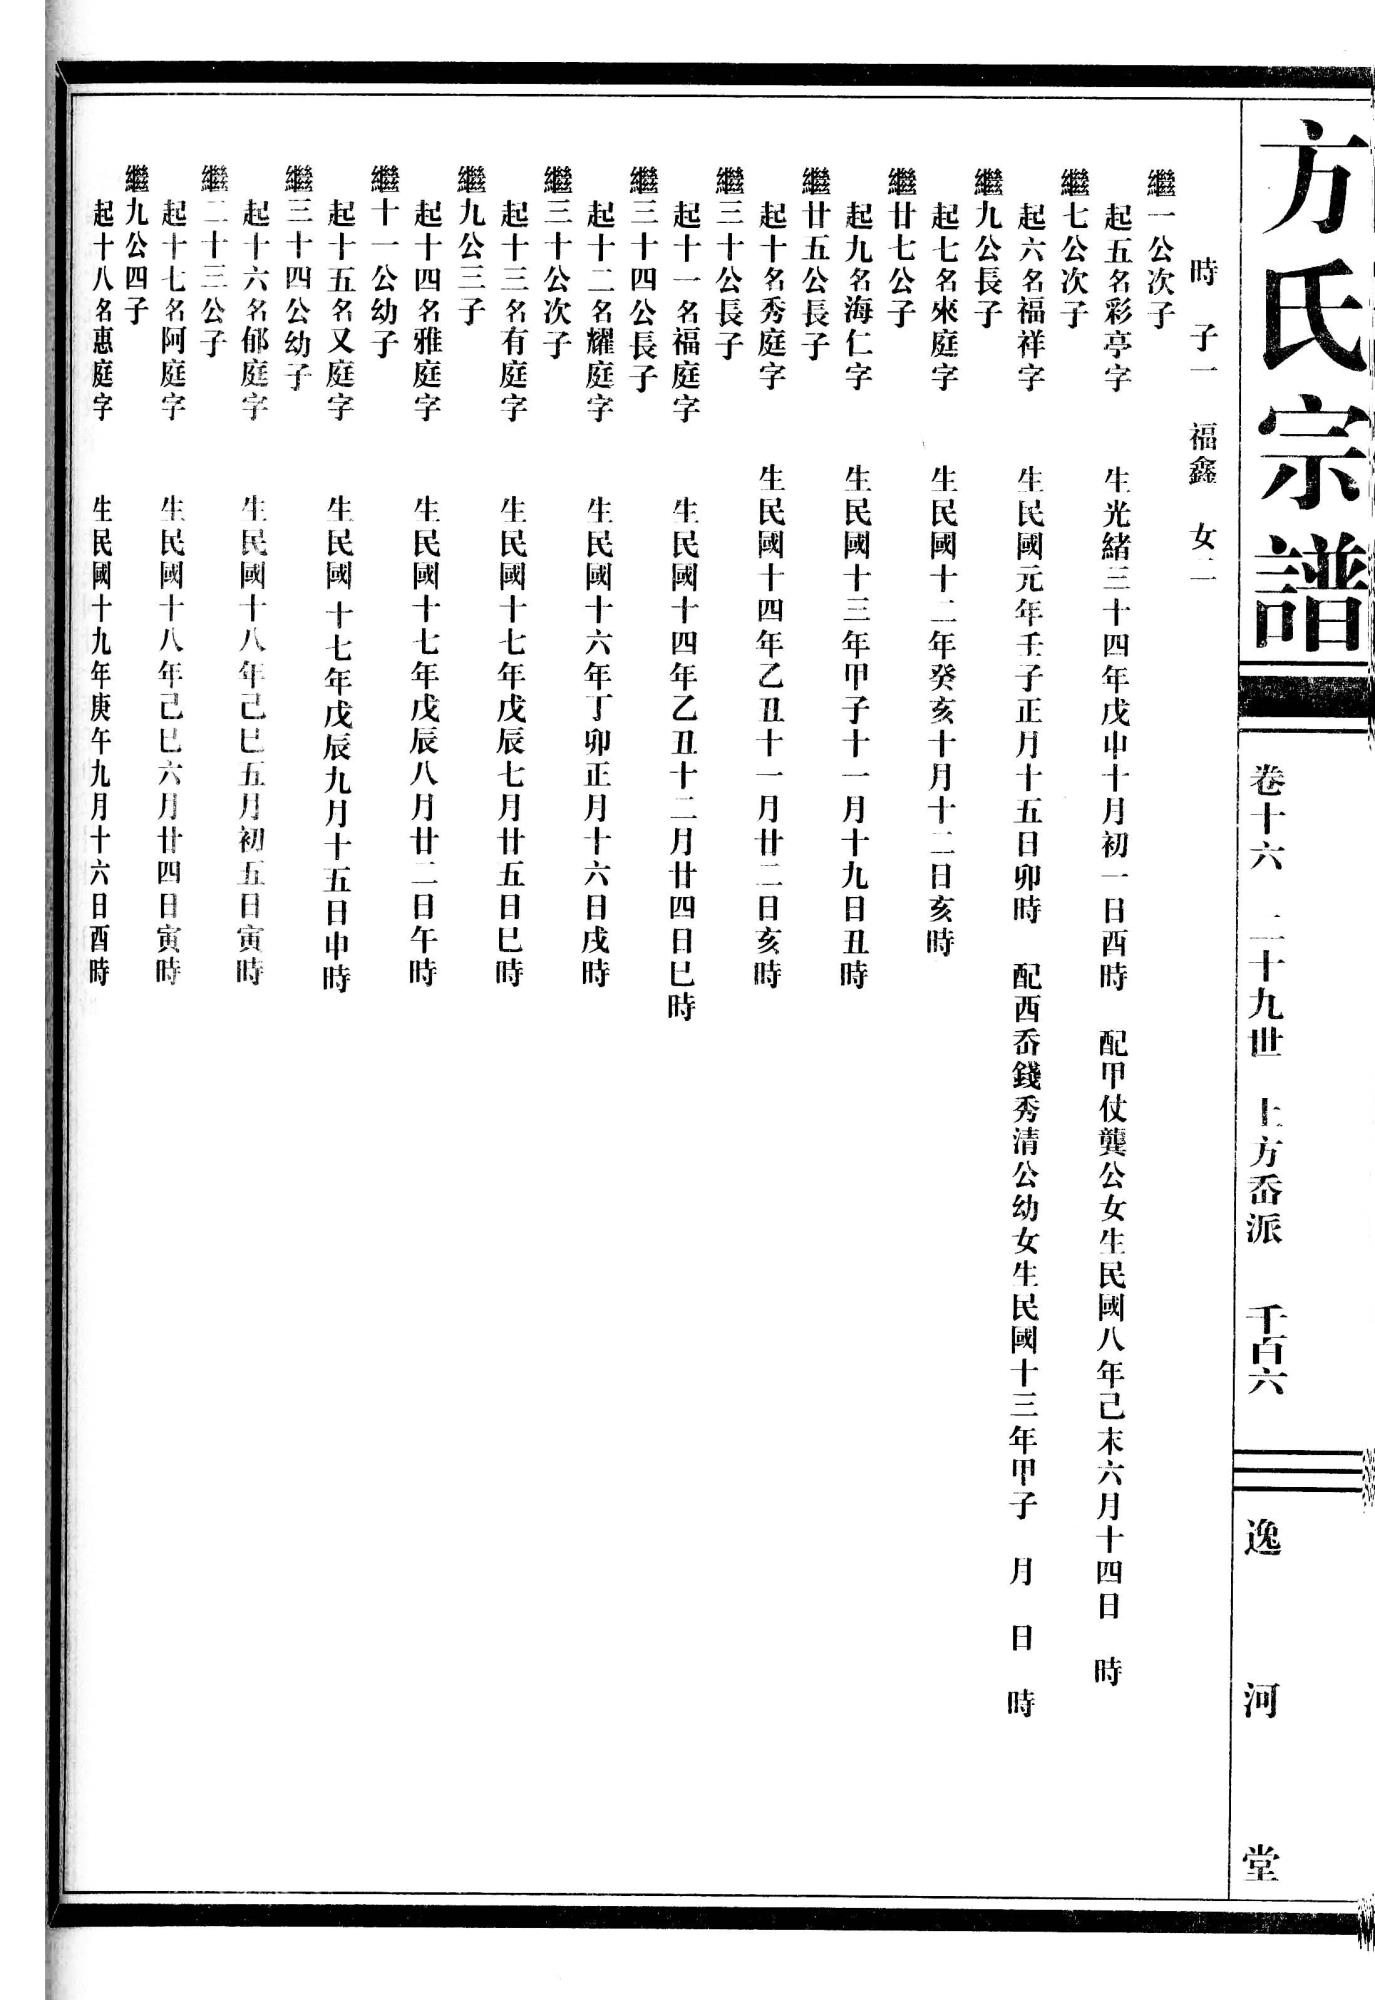 方氏宗譜
卷十六 二十九世 上方岙派 千百六
逸河堂
時 子一 福鑫 女二
繼一公次子
起五名彩亭字 生光緒三十四年戊申十月初一日酉時 配甲仗龔公女生民國八年己未六月十四日 時
繼七公次子
起六名福祥字 生民國元年壬子正月十五日卯時 配西岙錢秀清公幼女生民國十三年甲子 月 日 時
繼九公長子
起七名來庭字 生民國十二年癸亥十月十二日亥時
繼廿七公子
起九名海仁字 生民國十三年甲子十一月十九日丑時
繼廿五公長子
起十名秀庭字 生民國十四年乙丑十一月廿二日亥時
繼三十公長子
起十一名福庭字 生民國十四年乙丑十二月廿四日巳時
繼三十四公長子
起十二名耀庭字 生民國十六年丁卯正月十六日戌時
繼三十公次子
起十三名有庭字 生民國十七年戊辰七月廿五日巳時
繼九公三子
起十四名雅庭字 生民國十七年戊辰八月廿二日午時
繼十一公幼子
起十五名又庭字 生民國十七年戊辰九月十五日申時
繼三十四公幼子
起十六名郁庭字 生民國十八年己巳五月初五日寅時
繼二十三公子
起十七名阿庭字 生民國十八年己巳六月廿四日寅時
繼九公四子
起十八名惠庭字 生民國十九年庚午九月十六日酉時